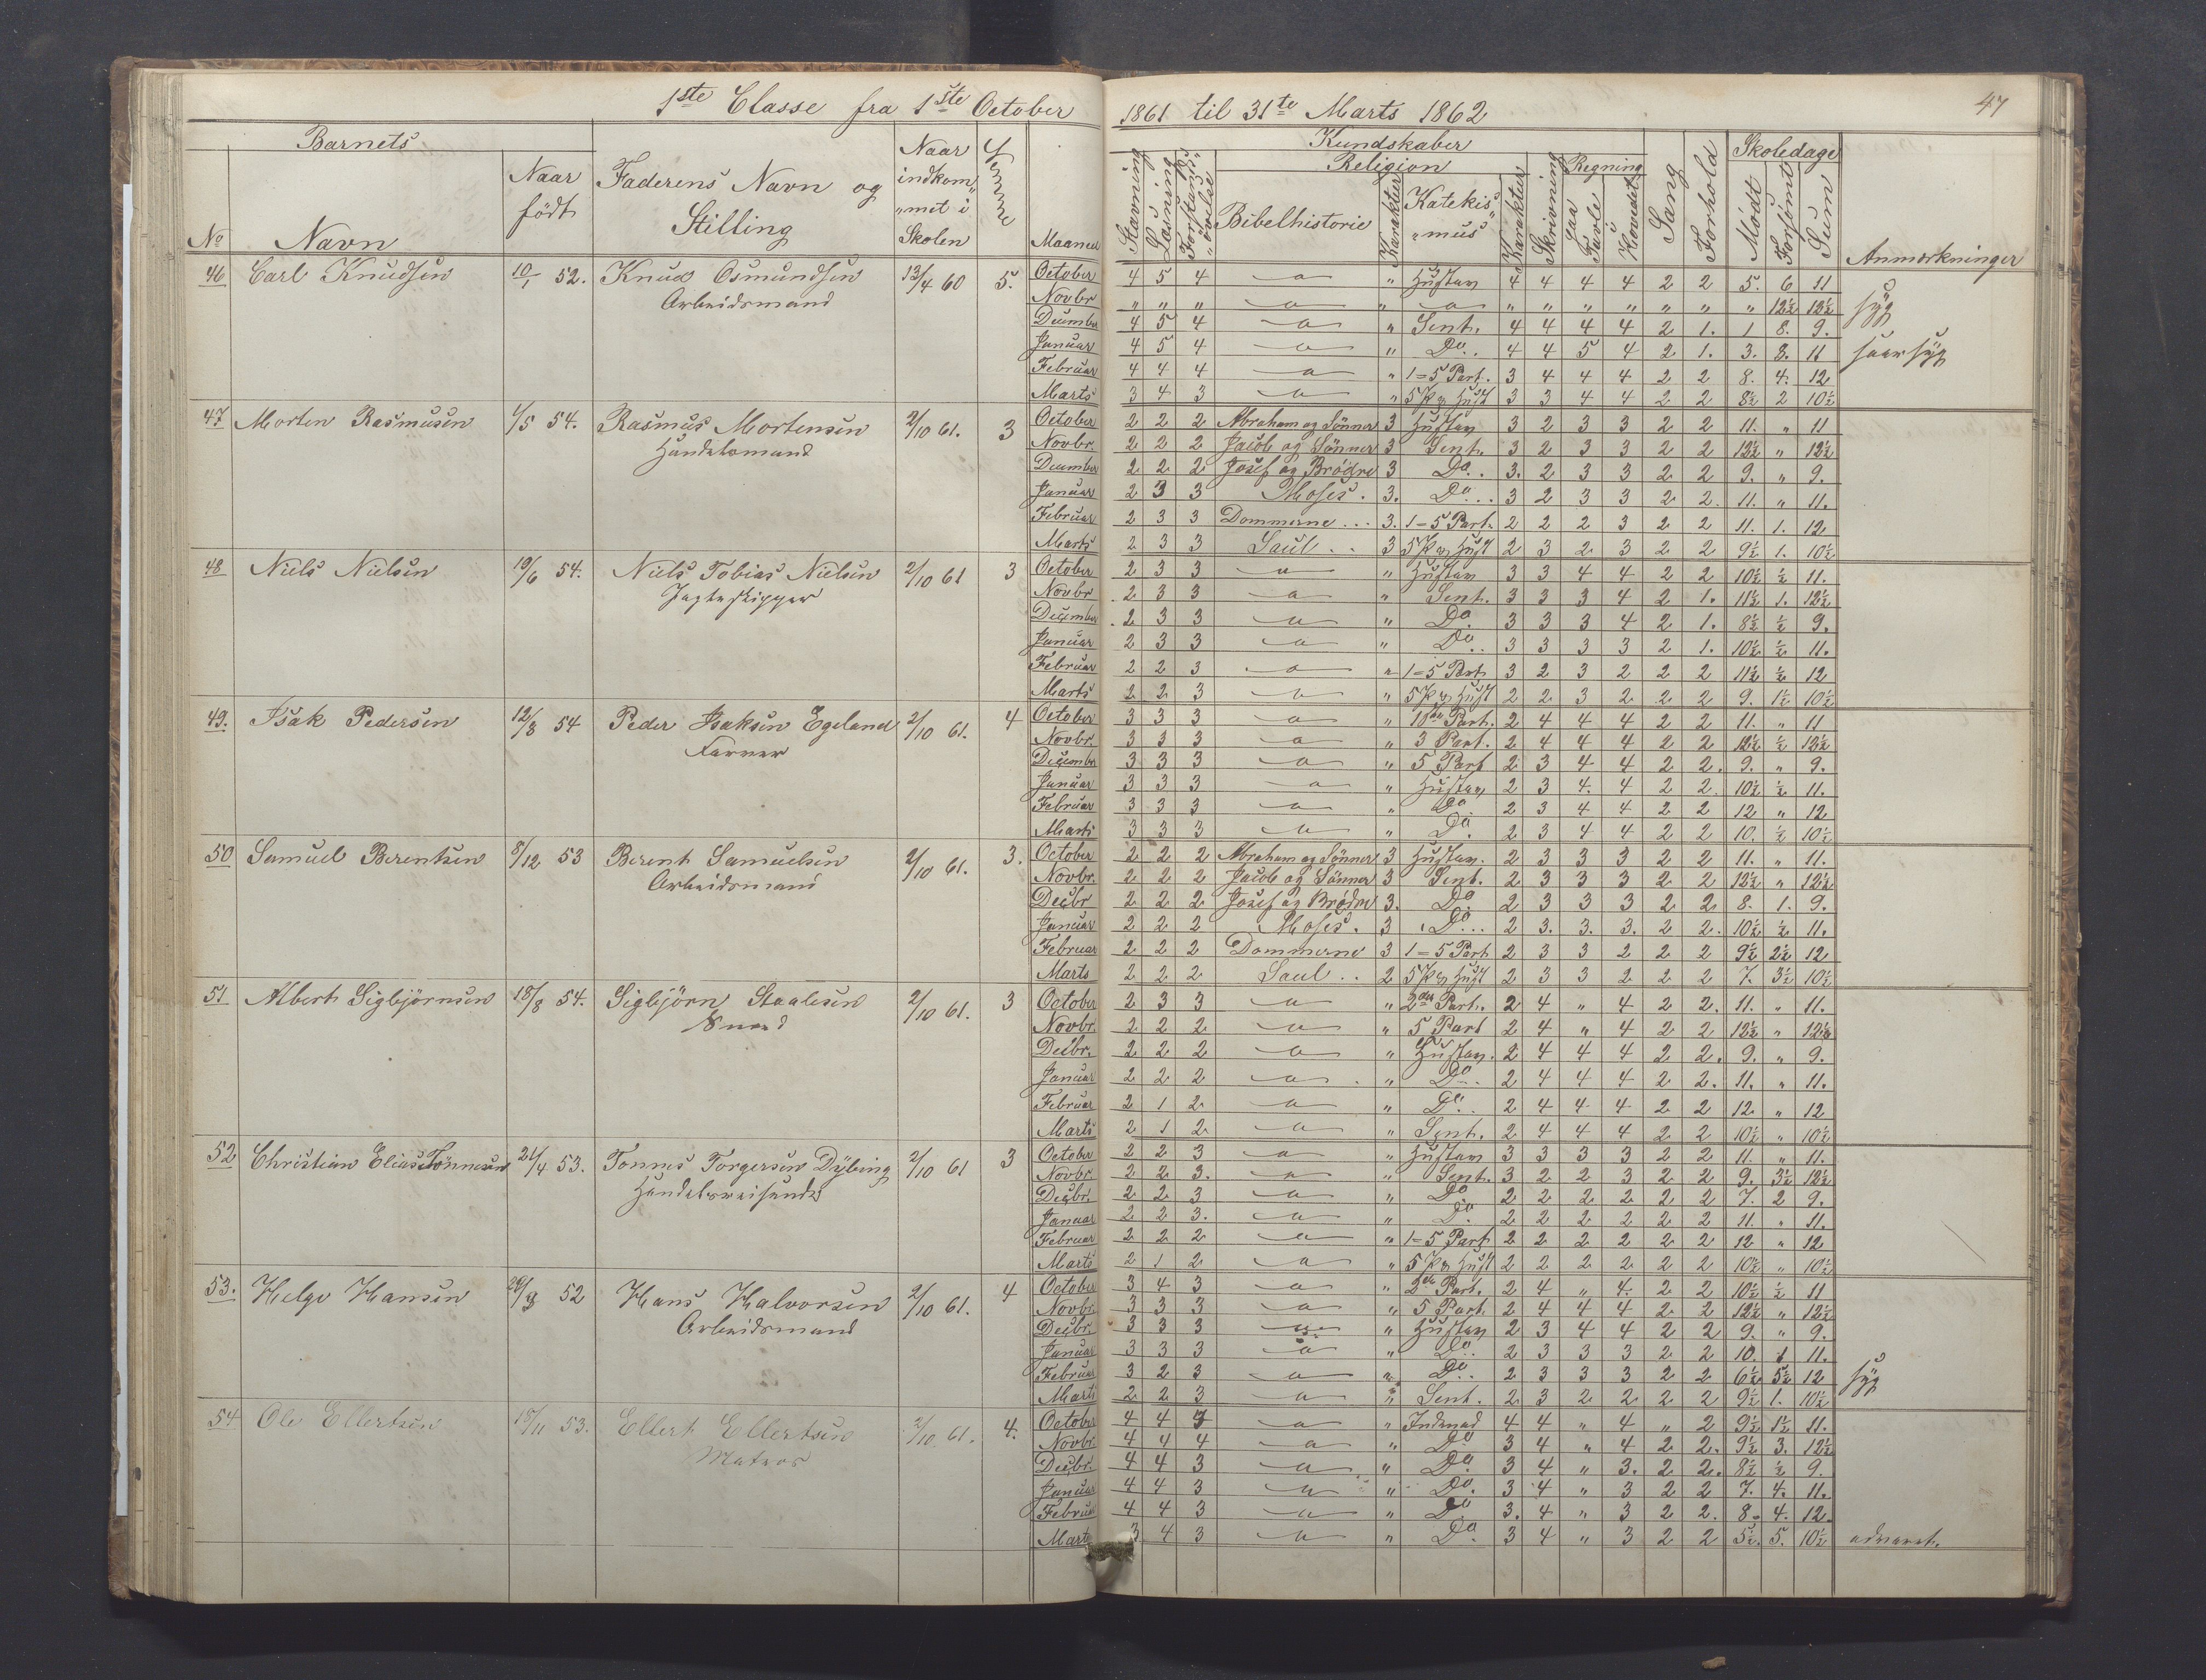 1ste Classe fra 1ste October 1861 til 31te Marts 1862
47
Barnets
No
Navn
Naar født
Faderens Navn og Stilling
Naar indkom„ „met i Skolen
Evnner
Maaned
Kundskaber
Stavning
Læsning
Forstands„ „øvelse
Religion
Bibelhistorie
Karakter
Katekis„ „mus
Karakter
Skrivning
Regning
paa Tavle
i Hovedet
Sang
Forhold
Skoledage
Mødt
Forsømt
Sum
Anmærkninger
46 Carl Knudsen 10/1 52. Knud Osmundsen 13/4 60 5.
Arbeidsmand
October 4 5 4 „ Hustav 4 4 4 4 2 2 5. 6 11
Novbr „ „ „ „ „ „ „ „ „ „ „ 12½ 12½ syg
December 4 5 4 „ Sent. 4 4 4 4 2 1. 1 8. 9.
Januar 4 5 4 „ Do.. 4 4 5 4 2 1. 3. 8. 11 syg
Februar 4 4 4 „ 1=5 Part. 3 4 4 4 2 2 8. 4. 12
Marts 3 4 3 „ 5 P og Hust 3 3 4 4 2 2 8½ 2 10½
47 Morten Rasmusen 1/5 54. Rasmus Mortensen 2/10 61. 3
Handelsmand
October 2 2 2 Abraham og Sønner 3 Hustav 3 2 3 3 2 2 11. „ 11
Novbr. 2 2 2 Jacob og Sønner 3 Sent. 3 2 3 3 2 2 12½ „ 12½
December 2 2 2 Josef og Brødre 3 Do.. 3. 2 3 3 2 2 9. „ 9.
Januar 2 3 3 Moses. 3. Do... 3 2 3 3 2 2. 11. „ 11.
Februar 2 3 3 Dommerne ... 3. 1=5 Part. 2 2 2 3 2 2 11. 1. 12
Marts 2 3 3 Saul .. 3 5 P og Hust 2 3 2 3 2 2 9½ 1. 10½
48 Niels Nielsen 19/6 54. Niels Tobias Nielsen 2/10 61 3
Jagteskipper
October 2 3 3 „ Hustav 3 3 4 4 2 2 10½ ½ 11.
Novbr 2 3 3 „ Sent. 3 3 3 4 2 1. 11½ 1. 12½
December 2 3 3 „ Do. 3 3 3 4 2 1. 8½ ½ 9.
Januar 2 3 3 „ Do.. 3 3 3 3 2 1. 10½ ½ 11.
Februar 2 2 3 „ 1=5 Part 3 2 3 2 2 2 11½ ½ 12
Marts 2 2 3 „ 5 P og Hust 2 2 3 2 2 2 9. 1½ 10½
49. Isak Pedersen 12/8 54 Peder Isaksen Egeland 2/10 61. 4
Farver
October 3 3 3 „ Part. 2 4 4 4 2 2 11. „ 11
Novbr. 3 3 3 „ 3 Part. 2 4 4 4 2 2 12½ ½ 12½
December 3 3 3 „ 5 Part 2 3 4 4 2 2. 9. „ 9.
Januar 3 3 3 „ Hustav 2 3 4. 4 2 2. 10½ ½ 11.
Februar 3 3 3 „ Do 2 3 4 4 2 2 12 „ 12
Marts 3 3 3 „ Do. 2 3 4 4 2 2 10. ½ 10½
50 Samuel Berentsen 8/12 53 Berent Samuelsen 2/10 61. 3.
Arbeidsmand
October 2 2 2 Abraham og Sønner 3 Hustav. 2 3 3 3 2 2 11. „ 11.
Novbr. 2 2 2 Jacob og Sønner 3 Sent. 2 3 3 3 2 2 12½ „ 12½
Decbr 2 2 2 Josef og Brødre 3. Do 2 3 3 3 2 2 8. 1. 9.
Januar 2 2 2 Moses. 3 Do... 2 3. 3. 3. 2 2. 10½ ½ 11.
Februar 2 2 2 Dommerne 3 1=5 Part 2 3 3 2 2 2 9½ 2½ 12
Marts 2 2 2 Saul .. 2 5 P og Hust 2 3 3 2 2 2 7. 3½ 10½
51 Albert Sigbjörnsen 18/8 54. Sigbjörn Staalesen 2/10 61. 3
Smed
October 2 3 3 „ 2den Part. 2 4 „ 4 2 2. 11. „ 11.
Novbr. 2 2 2 „ 5 Part 2 4 „ 4 2 2 12½ „ 12½
Decbr. 2 2 2 „ Hustav. 2 4 4 4 2 2. 9. „ 9.
Januar 2 2 2 „ Do.. 2 4 4 4 2 2. 11. „ 11.
Februar 2 1 2. „ Do.. 2 4 4 4 2 2 12. „ 12
Marts 2 1 2 „ Sent. 2 4 4 4 2 2 10½ „ 10½
52 Christian Elias Tønnesen 21/4 53. Tonnes Torgersen Dybing 2/10 61 3
Handelsreisende
October 2 2 3 „ Hustav 3 3 3 3 2 2 11. „ 11.
Novbr. 2 2 3. „ Sent. 3 2 2 3 2 2 9. 3½ 12½
Decbr. 2 2 3 „ Do 2 2 2 2 2 2 7. 2 9.
Januar 2 2 3. „ Do. 2 2 2 2 2 2 11. „ 11.
Februar 2 2 2 „ 1=5 Part 2 2 2 2 2 2 12 „ 12
Marts 2 1 2 „ 5 P og Hust 2 2 2 2 2 2 10½ „ 10½
53. Helge Hansen 52 Hans Halvorsen 2/10 61. 4
Arbeidsmand
October 3 4 3 „ 2de Part. 2 4 „ 4. 2 2 10½ ½ 11
Novbr. 3 3 3 „ 5 Part. 2 4 4 4 2 2 12½ „ 12½
Decbr. 3 3 3 „ Hustav 2 3 4 4 2 2 9. „ 9.
Januar 3 3 3 „ Do. 2 3 3 3 2 2 10. 1 11.
Februar 3 2 3 „ Do.. 2 3 3 3 2 2 6½ 5½ 12 syg
Marts 2 2 3 „ Sent. 2 3 2 2 2 2 9½ 1. 10½
54 Ole Ellertsen 18/11 53. Ellert Ellertsen 2/10. 61. 4.
Matros
October 4 4 3 „ Indenad 4 4 „ 4 „ 2 9½ 1½ 11.
Novbr. 4 4 4 „ Do 3 4 „ 4 2 2. 9½ 3. 12½
Decbr. 4 4 3 „ Do. 3 4 „ 3. 2 2. 8½ ½ 9.
Januar 4 4 3 „ Do. 3 4 „ 3 2 2 7. 4. 11.
Februar 4 4 3 „ Do 3. 4 „ 3 2 2. 8. 4. 12.
Marts 3 4 3 „ Do. 3 4 „ 3 2 2 5½. 5. 10½ advaret.